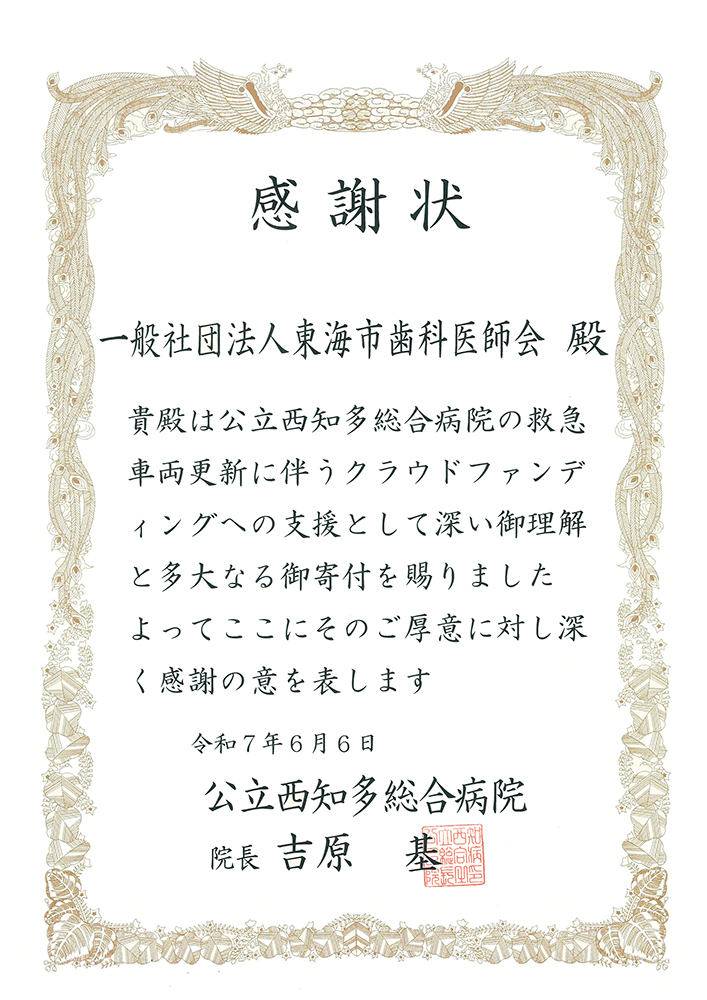 感謝状
一般社団法人東海市歯科医師会 殿
貴殿は公立西知多総合病院の救急
車両更新に伴うクラウドファンデ
ィングへの支援として深い御理解
と多大なる御寄付を賜りました
よってここにそのご厚意に対し深
く感謝の意を表します
令和７年６月６日
公立西知多総合病院
院長 吉原 基